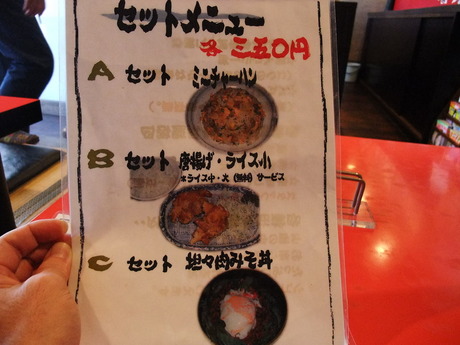 セットメニュー
各 三五〇円
A セット ミニチャーハン
B セット 唐揚げ・ライス小
※ライス中・大 (無料) サービス
C セット 坦々肉みそ丼